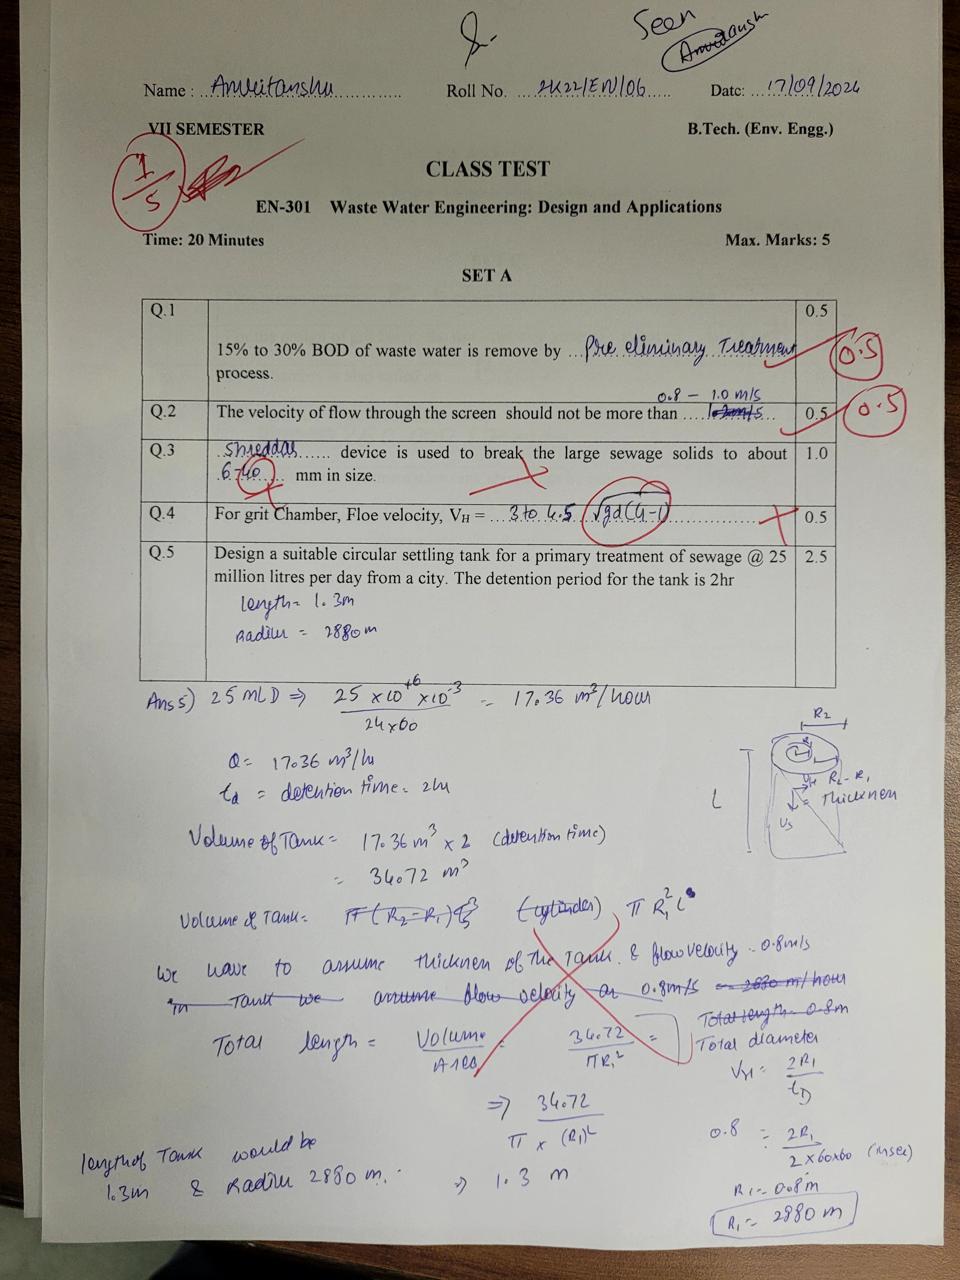 Seen
Amritansh
Name : Amritanshu Roll No. 2K22/EN/06 Date: 17/09/2024
VII SEMESTER B.Tech. (Env. Engg.)
1/5
CLASS TEST
EN-301 Waste Water Engineering: Design and Applications
Time: 20 Minutes Max. Marks: 5
SET A
Q.1 0.5
15% to 30% BOD of waste water is remove by ...Pre eliminary Treatment 0.5
process.
0.8 - 1.0 m/s
Q.2 The velocity of flow through the screen should not be more than .... 0.5 0.5
Q.3 Shreddar...... device is used to break the large sewage solids to about 1.0
6-40 mm in size.
Q.4 For grit Chamber, Floe velocity, VH = ...3 to 4.5 √gd(G-1)................ 0.5
Q.5 Design a suitable circular settling tank for a primary treatment of sewage @ 25 2.5
million litres per day from a city. The detention period for the tank is 2hr
length = 1.3m
Radius = 2880 m
Ans 5) 25 MLD ⇒ 25 x10^+6 x10^-3 / 24x60 = 17.36 m³/hour
R2
Q = 17.36 m³/h
R2-R1
td = detention time = 2hr
L
= Thicknen
Vs
Volume of Tank = 17.36 m³ x 2 (detention time)
= 34.72 m³
Volume of Tank = π(R2-R1)² (cylinder) π R1² L
We have to assume thicknen of the Tank & flow velocity = 0.8m/s
in Tank we assume flow velocity as 0.8m/s = 2880 m/hour
Total length = 0.8m
Total length = Volume / Area = 34.72 / πR1² = Total diameter
VH = 2R1 / tD
⇒ 34.72 / π x (R1)²
0.8 = 2R1 / 2x60x60 (insec)
length of Tank would be
1.3m & Radiu 2880 m. ⇒ 1.3 m
R1 = 0.8m
R1 = 2880 m